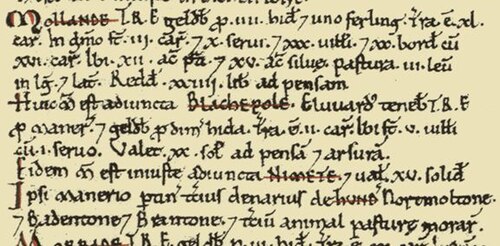 MOLLANDE T.R.E. geldb̄ ꝓ .iiii. hid̄ ⁊ uno ferling. T̄ra .ē. xl.
car̄. In dn̄io st̄ .iii. car̄. ⁊ x. serui. ⁊ xxx. uill̄i. ⁊ xx. bord̄ cū
xvi. car̄. Ibi .xii. ac̄ p̄ti. ⁊ xv. ac̄ siluę. Pastura .iii. leū
in lḡ ⁊ lat̄. Redd̄ .xxiiii. lib̄ ad pensam.
Huic m̄ est adiuncta BLACHEPOLE. Eluuard' teneb̄ T.R.E.
ꝓ maner̄. ⁊ geldb̄ ꝓ dim̄ hida. T̄ra .ē. ii. car̄. Ibi st̄ .v. uill̄i
cū .i. seruo. Valet .xx. sol̄ ad pensā ⁊ arsurā.
Eidem m̄ est iniuste adiuncta NIMETE. ⁊ ual̄ .xv. solid̄.
Ipsi manerio ptin̄ tcius denarius de HUND Nortmoltone.
⁊ Badentone ⁊ Brantone. ⁊ tciū animal pasturę morar̄.
T.R.E. geldb̄ ꝓ